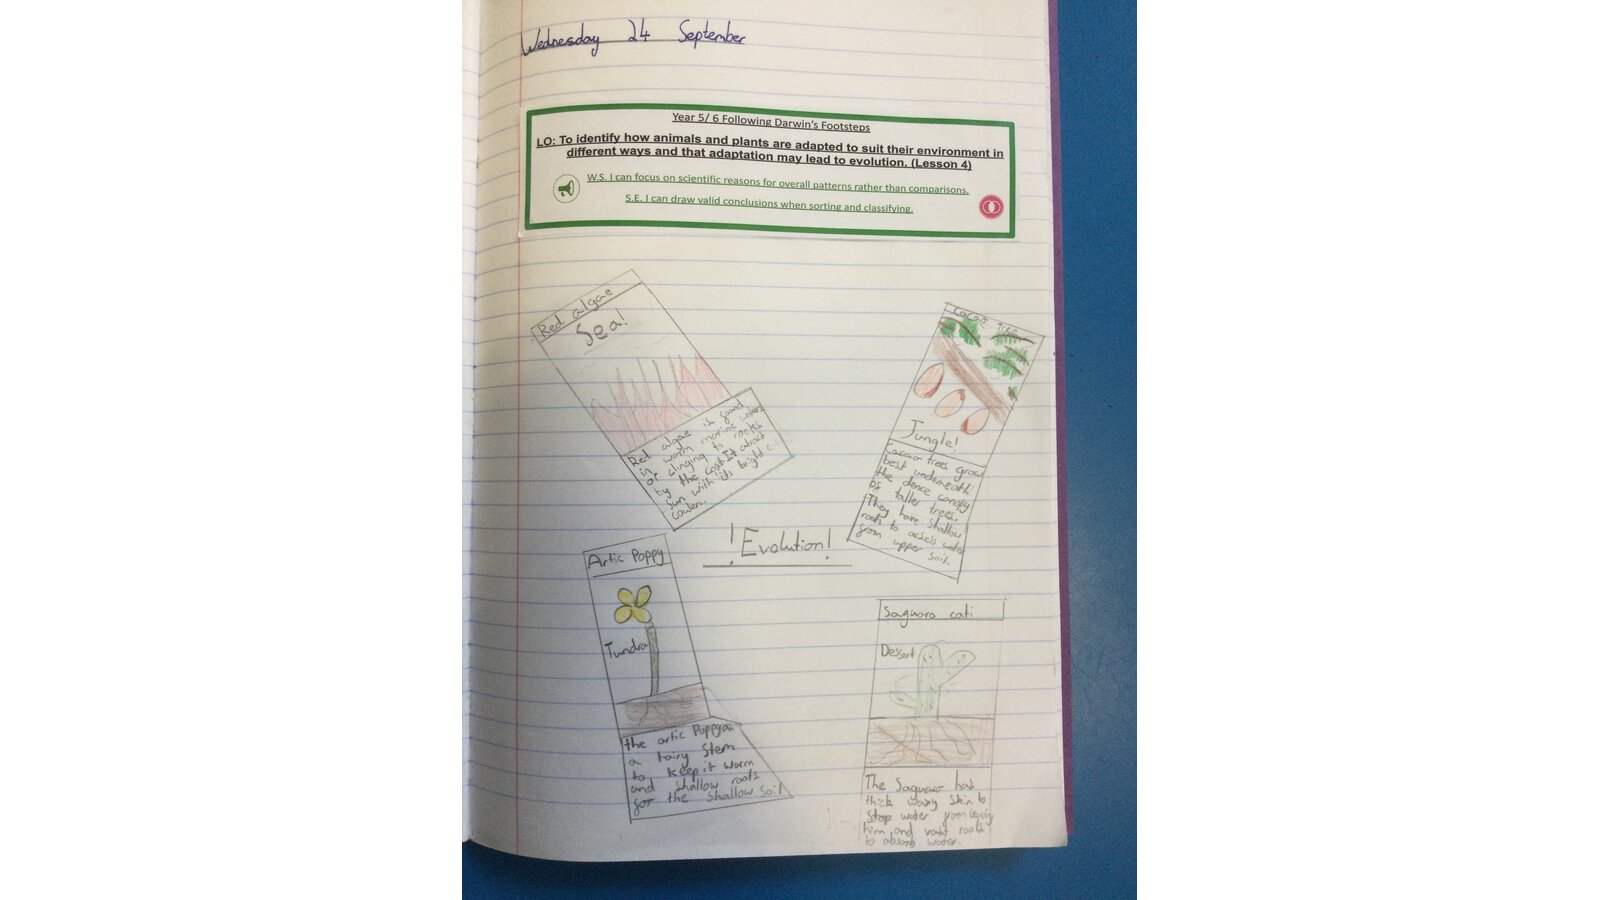 Wednesday 24 September
Year 5/ 6 Following Darwin's Footsteps
LO: To identify how animals and plants are adapted to suit their environment in
different ways and that adaptation may lead to evolution. (Lesson 4)
W.S. I can focus on scientific reasons for overall patterns rather than comparisons.
S.E. I can draw valid conclusions when sorting and classifying.
Red algae
Sea!
Red algae is found
in warm marine waters
or clinging to rocks
by the cost. It atract
sun with its bright
Cacao tree
Jungle!
Cacao trees grow
best underneath
the dence canopy
of taller trees.
They have shallow
roots to acsess water
from upper soil.
!Evolution!
Artic Poppy
Tundra
the artic Poppy
a hairy Stem
to keep it warm
and shallow roots
for the shallow Soil
Saguaro cati
Dessert
The Saguaro has
thick waxy skin to
Stop water from leaving
him and vast roots
to absorb water.